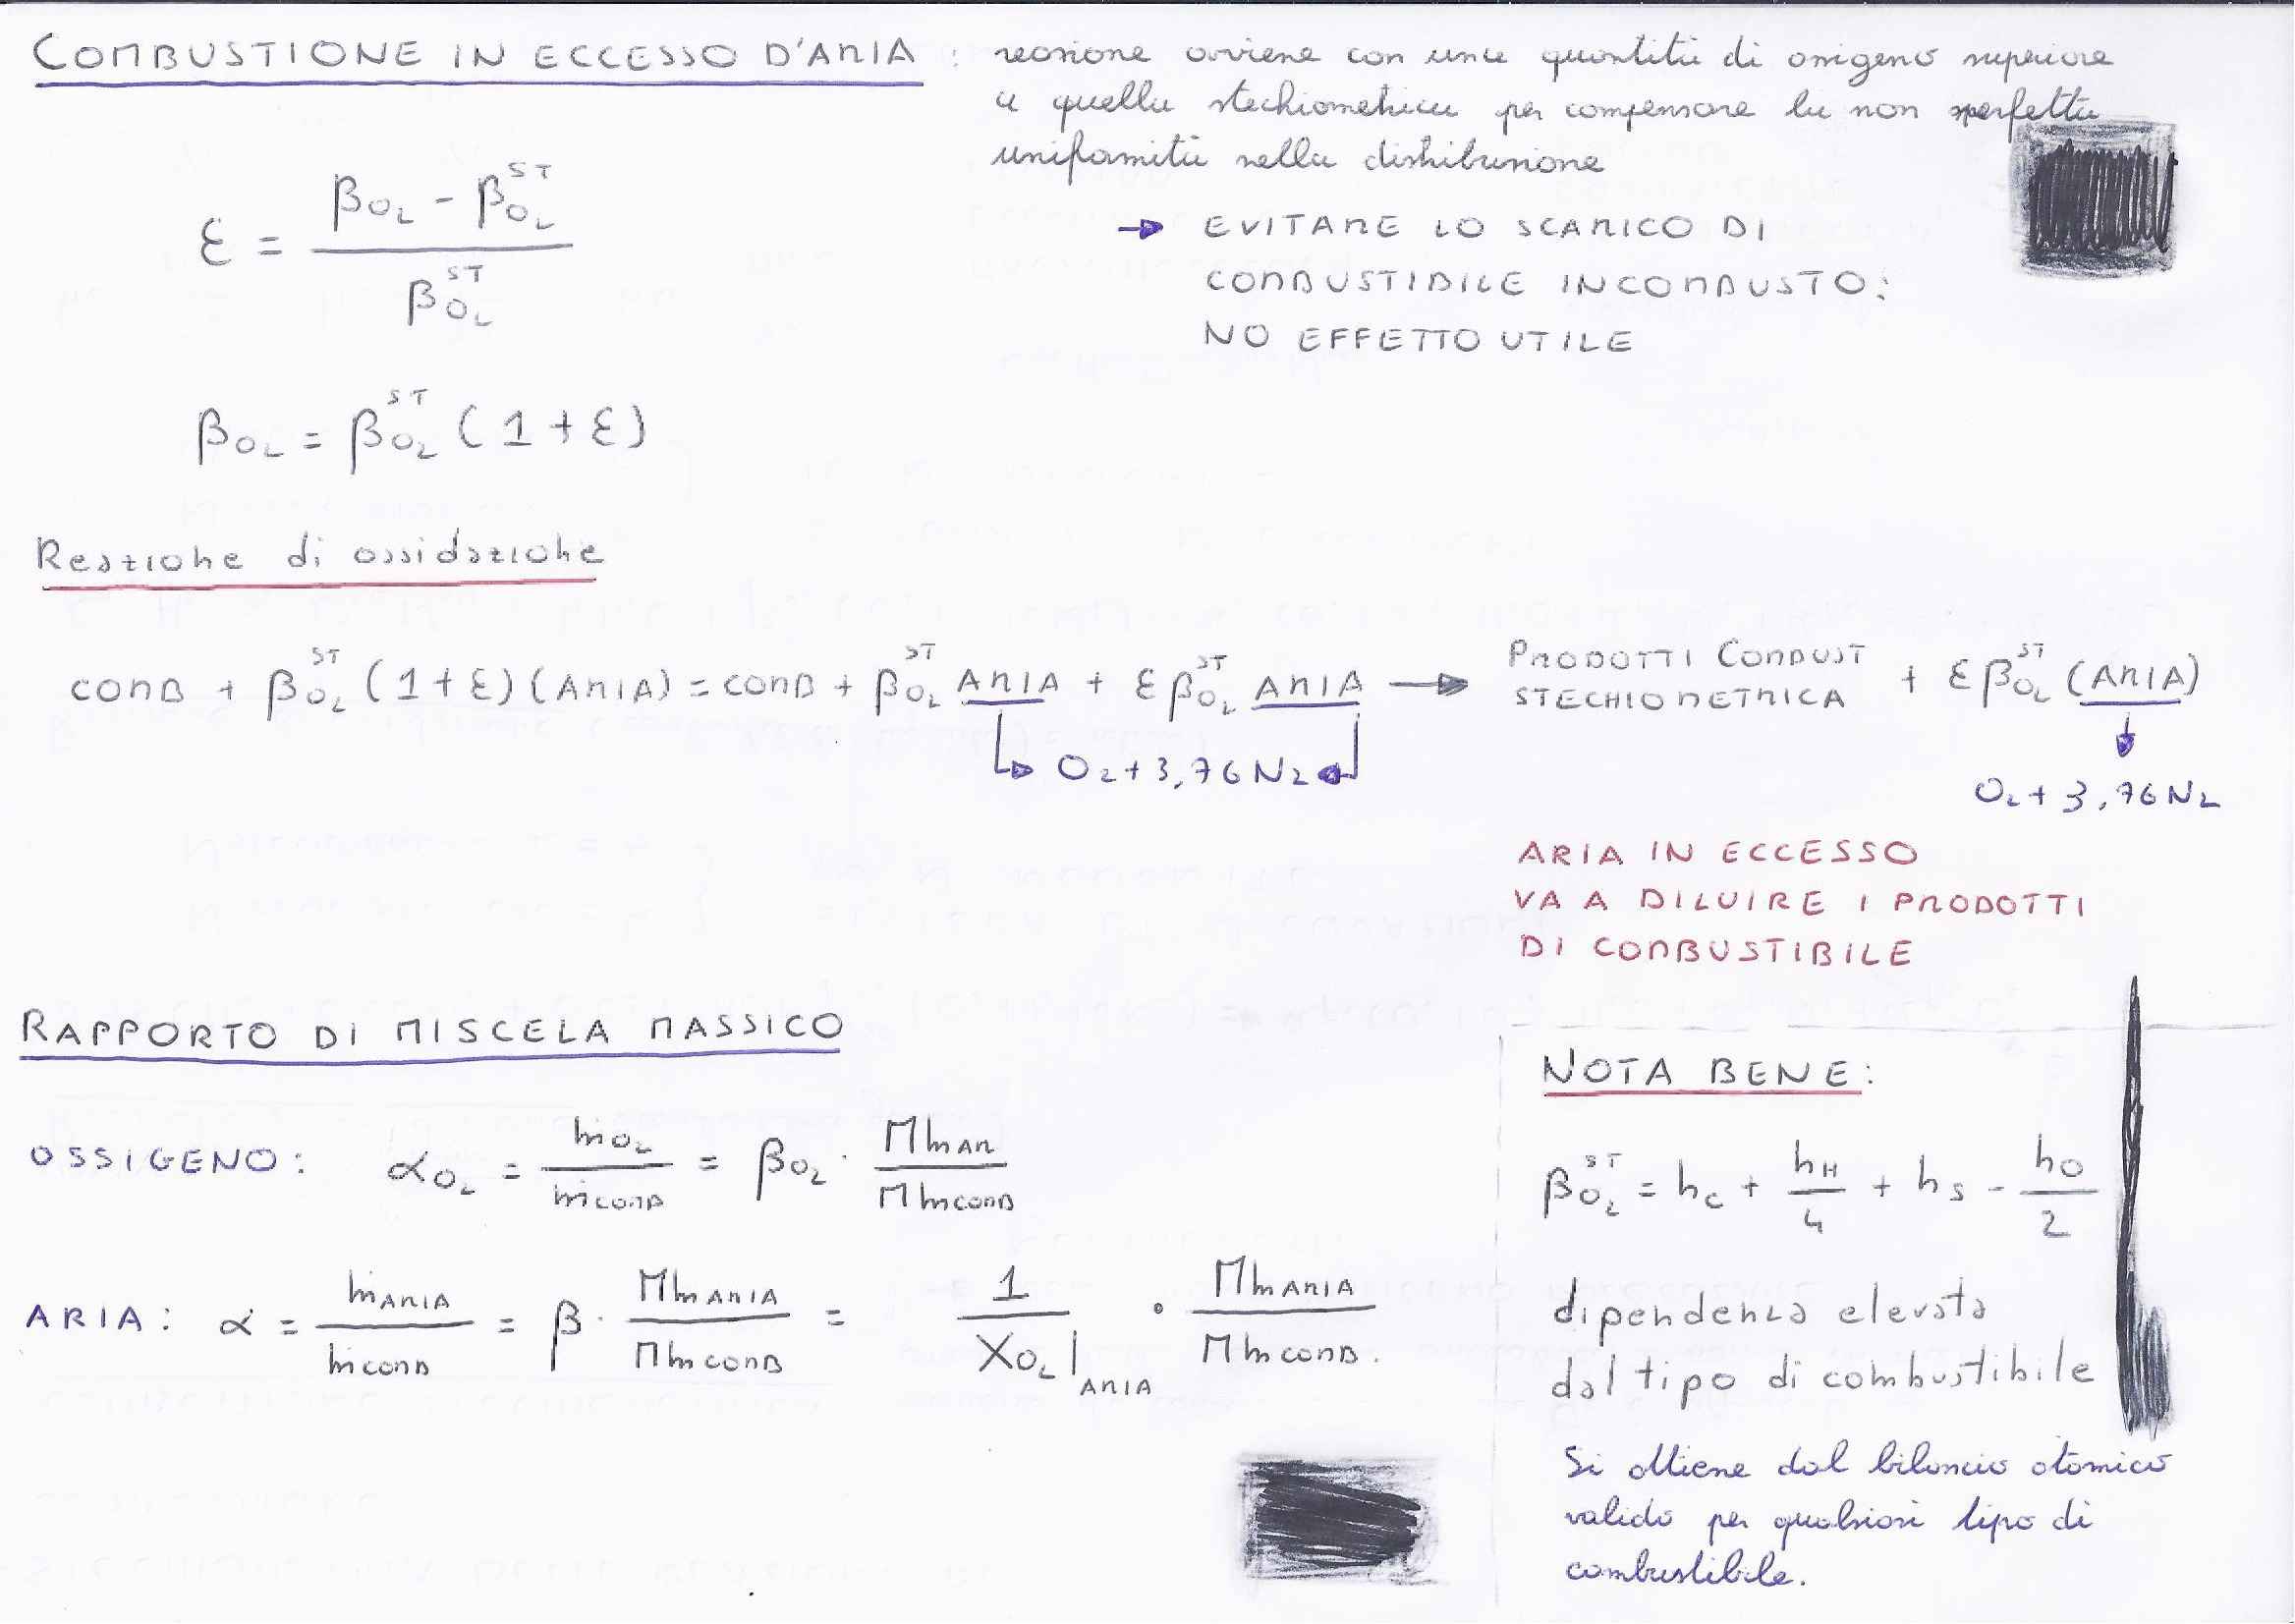 COMBUSTIONE IN ECCESSO D'ARIA : reazione avviene con una quantità di ossigeno superiore
a quella stechiometrica per compensare la non perfetta
uniformità nella distribuzione
→ EVITARE LO SCARICO DI
COMBUSTIBILE INCOMBUSTO:
NO EFFETTO UTILE
ε = (β_O2 - β_O2^ST) / β_O2^ST
β_O2 = β_O2^ST (1+ε)
Reazione di ossidazione
COMB + β_O2^ST (1+ε)(ARIA) = COMB + β_O2^ST ARIA + ε β_O2^ST ARIA → PRODOTTI COMBUST STECHIOMETRICA + ε β_O2^ST (ARIA)
O2 + 3,76 N2
O2 + 3,76 N2
ARIA IN ECCESSO
VA A DILUIRE I PRODOTTI
DI COMBUSTIBILE
RAPPORTO DI MISCELA MASSICO
OSSIGENO: α_O2 = ṁ_O2 / ṁ_COMB = β_O2 · Mm_AR / Mm_COMB
ARIA: α = ṁ_ARIA / ṁ_COMB = β · Mm_ARIA / Mm_COMB = 1 / X_O2|_ARIA · Mm_ARIA / Mm_COMB.
NOTA BENE:
β_O2^ST = n_C + n_H/4 + n_S - n_O/2
dipendenza elevata
dal tipo di combustibile
Si ottiene dal bilancio atomico
valido per qualsiasi tipo di
combustibile.